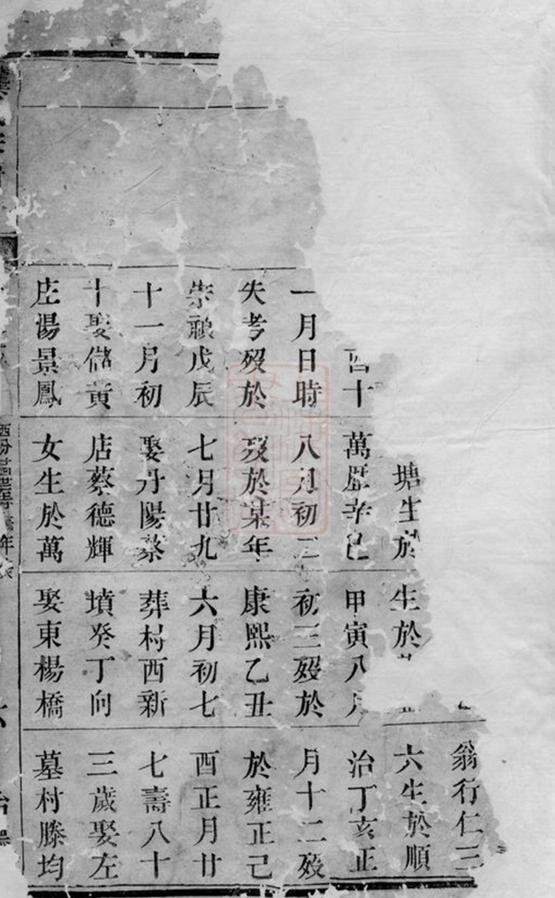 十
一月日時
失考歿於
崇禎戊辰
十一月初
十娶儲黃
庄湯景鳳
塘生於
萬曆辛巳
八月初
歿於某年
七月廿九
娶丹陽蔡
店蔡德輝
女生於萬
生於
甲寅八月
初三歿於
康熙乙丑
六月初七
葬村西新
墳癸丁向
娶東楊橋
翁行仁三
六生於順
治丁亥正
月十二歿
於雍正己
酉正月廿
七壽八十
三歲娶左
墓村滕均